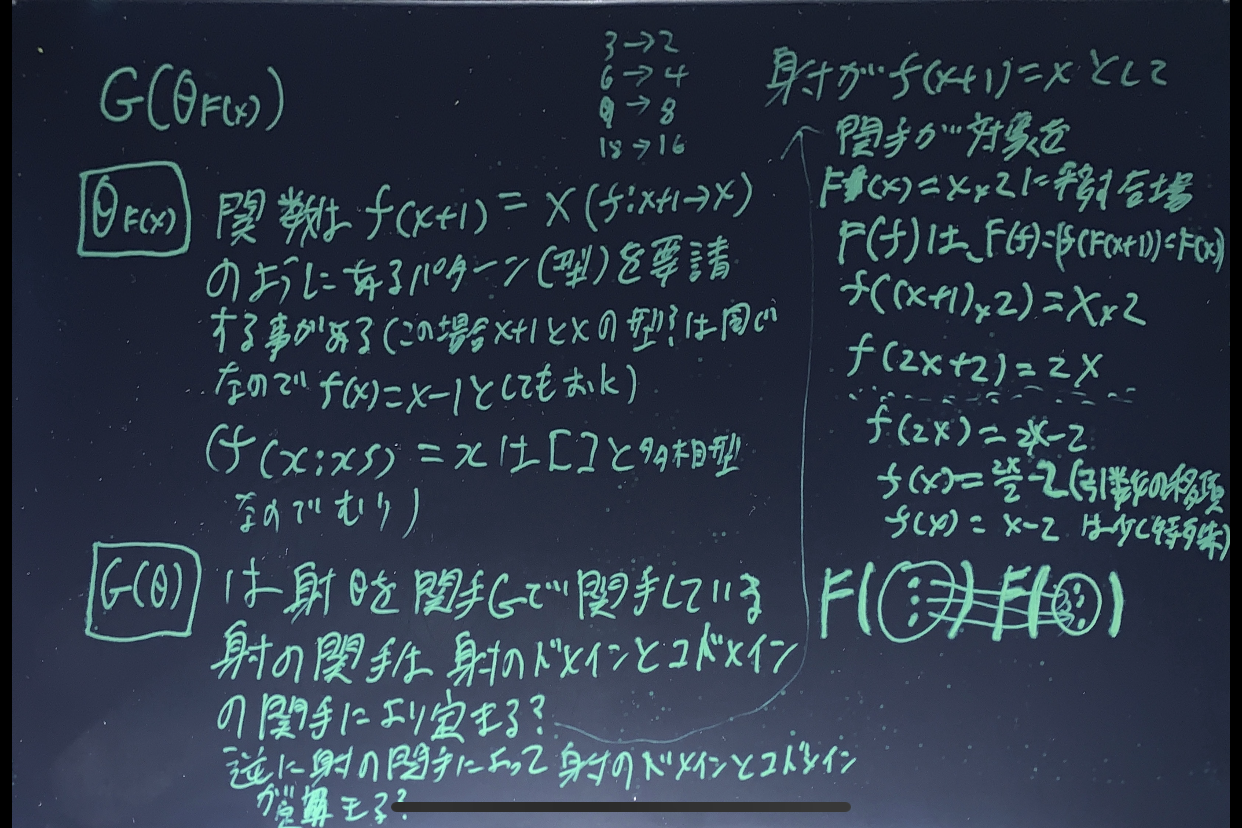 G(θF(x))
3→2
6→4
9→8
18→16
θF(x)
関数は f(x+1) = x (f:x+1→x)
のようにあるパターン(型)を要請
する事がある(この場合x+1とxの型?は同じ
なので f(x)=x-1としてもおk)
(f(x:xs) = xは[]と多相型
なのでむり)
G(θ)
は 射θを関手Gで関手している
射の関手は 射のドメインとコドメイン
の関手により定まる?
逆に射の関手によって 射のドメインとコドメイン
が定まる?
射が f(x+1)=x として
関手が対象を
F(x)=x×2に移す合場
F(f)は、F(f)=f(F(x+1))=F(x)
f((x+1)×2)=x×2
f(2x+2)=2x
f(2x)=2x-2
f(x)=2x/2-2(引数の移項
f(x)=x-2 は少し特殊)
F( ) F( )